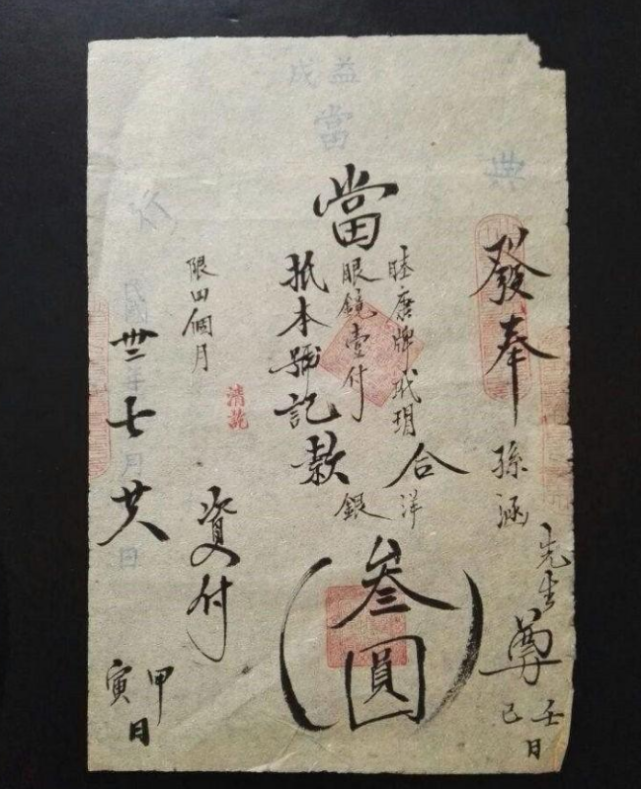 益成
當
典
發奉孫涵先生尊
壬
己日
當
睦唐牌玳瑁
眼鏡壹付
合洋
銀
叁圓
抵本號記款
限四個月
清訖
資付
民國 年 月 日
卅二 七 廿八
甲
寅日